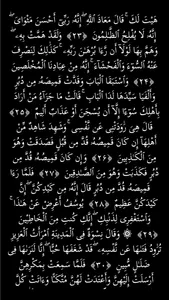 هَيْتَ لَكَ ۚ قَالَ مَعَاذَ ٱللَّهِ ۖ إِنَّهُۥ رَبِّىٓ أَحْسَنَ مَثْوَاىَ ۖ
إِنَّهُۥ لَا يُفْلِحُ ٱلظَّـٰلِمُونَ ﴿٢٣﴾ وَلَقَدْ هَمَّتْ بِهِۦ ۖ
وَهَمَّ بِهَا لَوْلَآ أَن رَّءَا بُرْهَـٰنَ رَبِّهِۦ ۚ كَذَٰلِكَ لِنَصْرِفَ
عَنْهُ ٱلسُّوٓءَ وَٱلْفَحْشَآءَ ۚ إِنَّهُۥ مِنْ عِبَادِنَا ٱلْمُخْلَصِينَ
﴿٢٤﴾ وَٱسْتَبَقَا ٱلْبَابَ وَقَدَّتْ قَمِيصَهُۥ مِن دُبُرٍ
وَأَلْفَيَا سَيِّدَهَا لَدَا ٱلْبَابِ ۚ قَالَتْ مَا جَزَآءُ مَنْ أَرَادَ
بِأَهْلِكَ سُوٓءًا إِلَّآ أَن يُسْجَنَ أَوْ عَذَابٌ أَلِيمٌ ﴿٢٥﴾
قَالَ هِىَ رَٰوَدَتْنِى عَن نَّفْسِى ۚ وَشَهِدَ شَاهِدٌ مِّنْ
أَهْلِهَآ إِن كَانَ قَمِيصُهُۥ قُدَّ مِن قُبُلٍ فَصَدَقَتْ وَهُوَ
مِنَ ٱلْكَـٰذِبِينَ ﴿٢٦﴾ وَإِن كَانَ قَمِيصُهُۥ قُدَّ مِن
دُبُرٍ فَكَذَبَتْ وَهُوَ مِنَ ٱلصَّـٰدِقِينَ ﴿٢٧﴾ فَلَمَّا رَءَا
قَمِيصَهُۥ قُدَّ مِن دُبُرٍ قَالَ إِنَّهُۥ مِن كَيْدِكُنَّ ۖ إِنَّ
كَيْدَكُنَّ عَظِيمٌ ﴿٢٨﴾ يُوسُفُ أَعْرِضْ عَنْ هَـٰذَا ۚ
وَٱسْتَغْفِرِى لِذَنۢبِكِ ۖ إِنَّكِ كُنتِ مِنَ ٱلْخَاطِـِٔينَ
﴿٢٩﴾ ۞ وَقَالَ نِسْوَةٌ فِى ٱلْمَدِينَةِ ٱمْرَأَتُ ٱلْعَزِيزِ
تُرَٰوِدُ فَتَىٰهَا عَن نَّفْسِهِۦ ۖ قَدْ شَغَفَهَا حُبًّا ۖ إِنَّا لَنَرَىٰهَا فِى
ضَلَـٰلٍ مُّبِينٍ ﴿٣٠﴾ فَلَمَّا سَمِعَتْ بِمَكْرِهِنَّ
أَرْسَلَتْ إِلَيْهِنَّ وَأَعْتَدَتْ لَهُنَّ مُتَّكَـًٔا وَءَاتَتْ كُلَّ